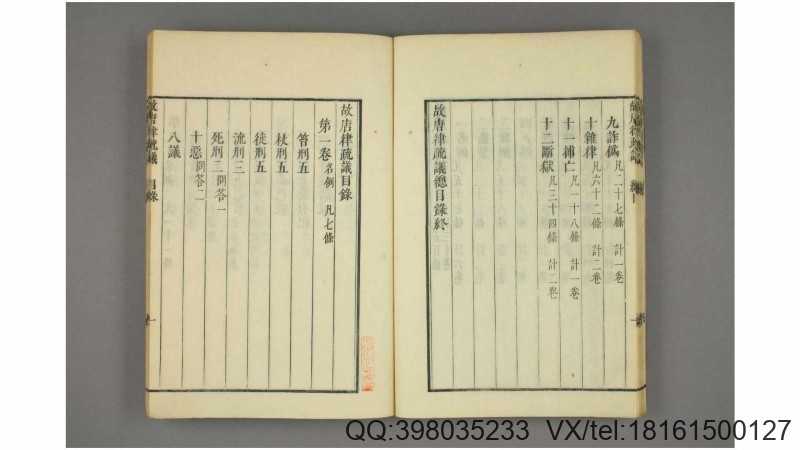 九詐僞 凡二十七條 計一卷
十雜律 凡六十二條 計二卷
十一捕亡 凡一十八條 計一卷
十二斷獄 凡三十四條 計二卷
故唐律疏議總目錄終
故唐律疏議目錄
第一卷 名例 凡七條
笞刑五
杖刑五
徒刑五
流刑三
死刑二 問答一
十惡 問答二
八議
故唐律疏議 目錄
一
QQ:398035233 VX/tel:18161500127